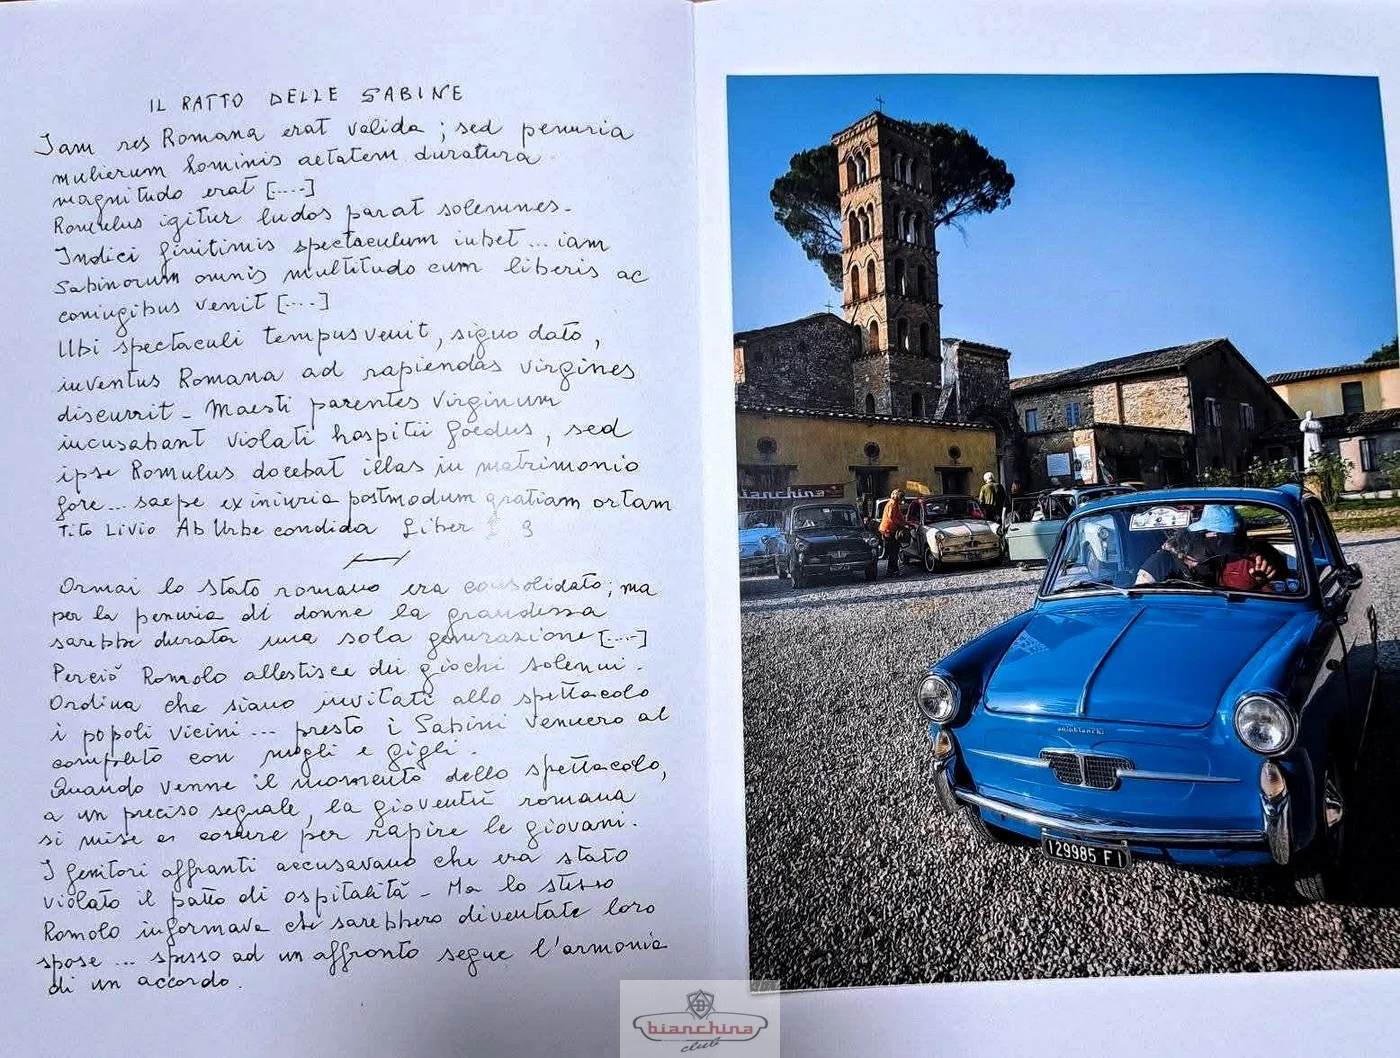 IL RATTO DELLE SABINE
Iam res Romana erat valida ; sed penuria
mulierum hominis aetatem duratura
magnitudo erat [.....]
Romulus igitur ludos parat solemnes.
Indici finitimis spectaculum iubet ... iam
Sabinorum omnis multitudo cum liberis ac
coniugibus venit [.....]
Ubi spectaculi tempus venit, signo dato,
iuventus Romana ad rapiendas virgines
discurrit - Maesti parentes virginum
incusabant violati hospitii foedus, sed
ipse Romulus docebat illas in matrimonio
fore ... saepe ex iniuria postmodum gratiam ortam
Tito Livio Ab Urbe condida Liber 9
Ormai lo stato romano era consolidato; ma
per la penuria di donne la grandezza
sarebbe durata una sola generazione [.....]
Perciò Romolo allestisce dei giochi solenni.
Ordina che siano invitati allo spettacolo
i popoli vicini ... presto i Sabini vennero al
completo con mogli e figli.
Quando venne il momento dello spettacolo,
a un preciso segnale, la gioventù romana
si mise a correre per rapire le giovani.
I genitori affranti accusavano che era stato
violato il patto di ospitalità - Ma lo stesso
Romolo informava che sarebbero diventate loro
spose ... spesso ad un affronto segue l'armonia
di un accordo.
bianchina
autobianchi
129985 FI
bianchina
club